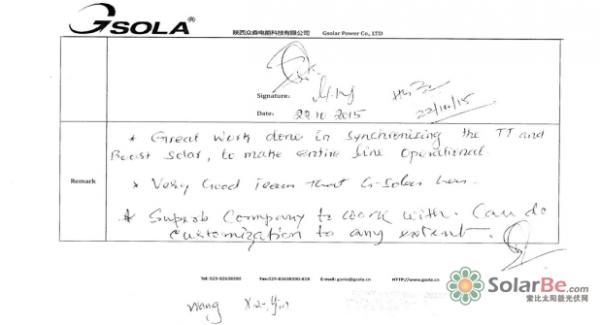 GSOLA®
陕西众森电能科技有限公司 Gsolar Power Co., LTD
Signature:
Date: 22.10.2015 22/10/15
* Great work done in synchronising the TT and
Boost Solar, to make entire line operational.
Remark
* Very Good Team that G-Solar has.
* Superb Company to work with. Can do
customization to any extent.
Tel: 029-82638300 Fax:029-82638300-818 E-mail: gsola@gsola.cn HTTP://www.gsola.cn
Wang
SolarBe.com
索比太阳能光伏网